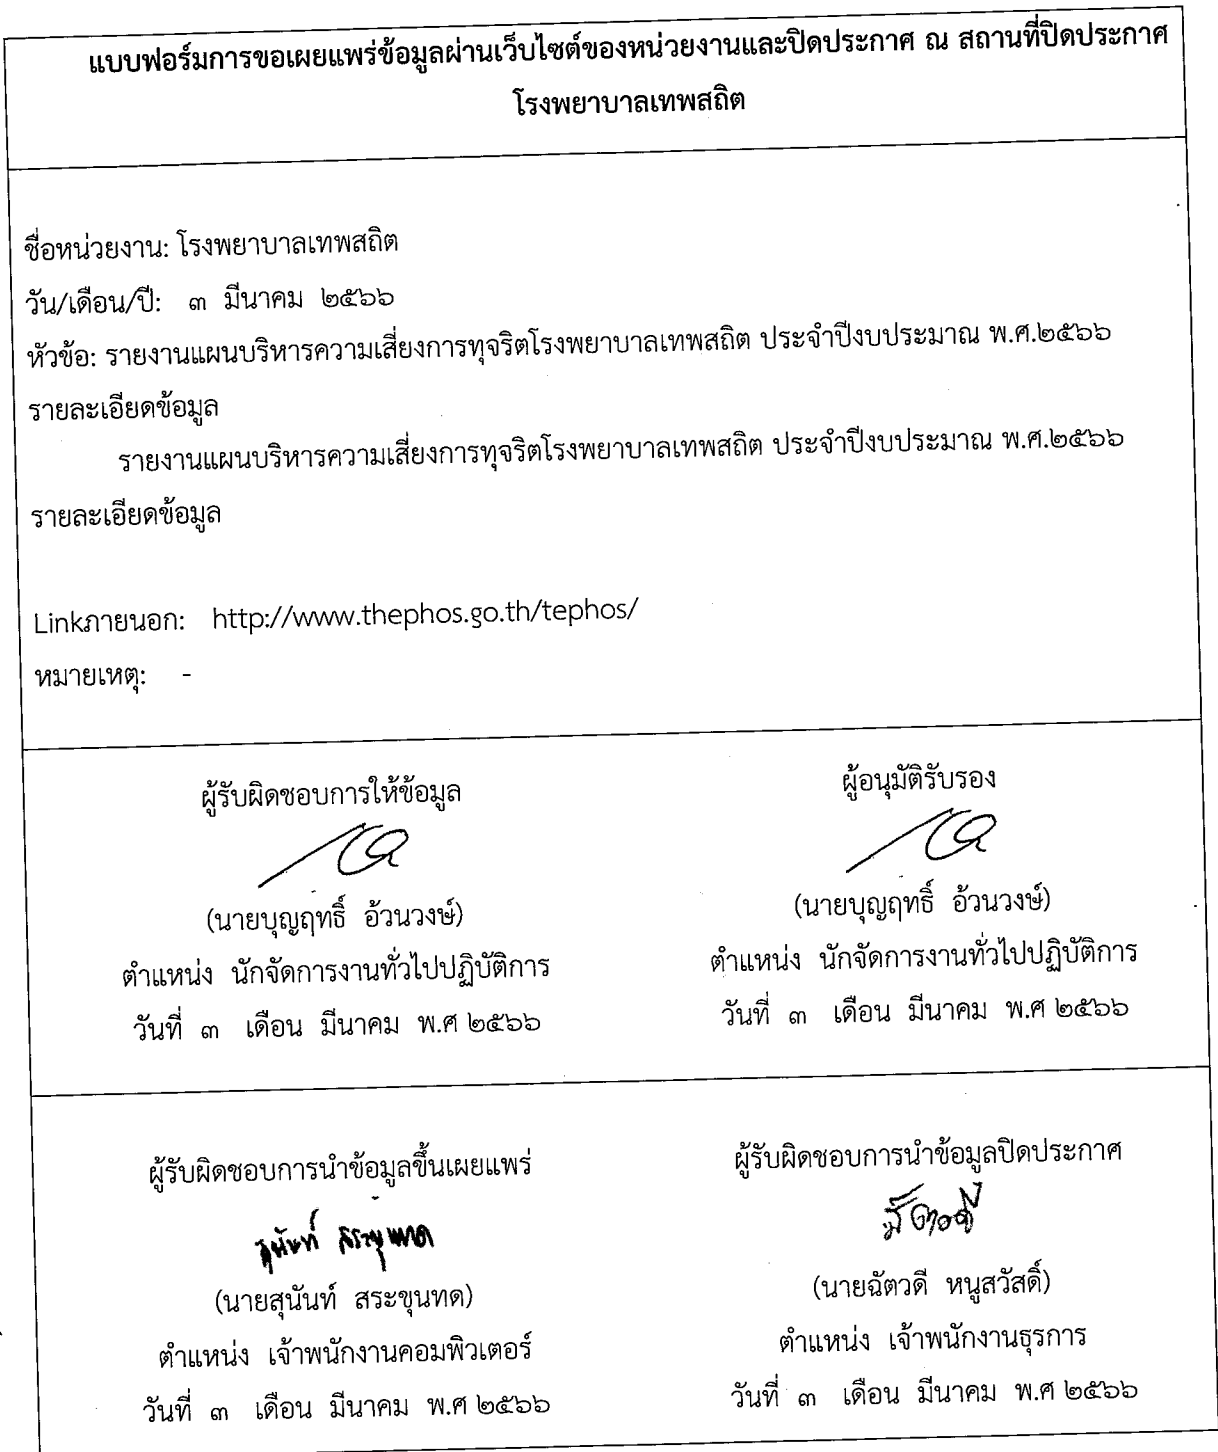 แบบฟอร์มการขอเผยแพร่ข้อมูลผ่านเว็บไซต์ของหน่วยงานและปิดประกาศ ณ สถานที่ปิดประกาศ
โรงพยาบาลเทพสถิต
ชื่อหน่วยงาน: โรงพยาบาลเทพสถิต
วัน/เดือน/ปี: ๓ มีนาคม ๒๕๖๖
หัวข้อ: รายงานแผนบริหารความเสี่ยงการทุจริตโรงพยาบาลเทพสถิต ประจำปีงบประมาณ พ.ศ.๒๕๖๖
รายละเอียดข้อมูล
รายงานแผนบริหารความเสี่ยงการทุจริตโรงพยาบาลเทพสถิต ประจำปีงบประมาณ พ.ศ.๒๕๖๖
รายละเอียดข้อมูล
Linkภายนอก: http://www.thephos.go.th/tephos/
หมายเหตุ: -
ผู้รับผิดชอบการให้ข้อมูล
(นายบุญฤทธิ์ อ้วนวงษ์)
ตำแหน่ง นักจัดการงานทั่วไปปฏิบัติการ
วันที่ ๓ เดือน มีนาคม พ.ศ ๒๕๖๖
ผู้อนุมัติรับรอง
(นายบุญฤทธิ์ อ้วนวงษ์)
ตำแหน่ง นักจัดการงานทั่วไปปฏิบัติการ
วันที่ ๓ เดือน มีนาคม พ.ศ ๒๕๖๖
ผู้รับผิดชอบการนำข้อมูลขึ้นเผยแพร่
สุนันท์ สระขุนทด
(นายสุนันท์ สระขุนทด)
ตำแหน่ง เจ้าพนักงานคอมพิวเตอร์
วันที่ ๓ เดือน มีนาคม พ.ศ ๒๕๖๖
ผู้รับผิดชอบการนำข้อมูลปิดประกาศ
(นายฉัตวดี หนูสวัสดิ์)
ตำแหน่ง เจ้าพนักงานธุรการ
วันที่ ๓ เดือน มีนาคม พ.ศ ๒๕๖๖